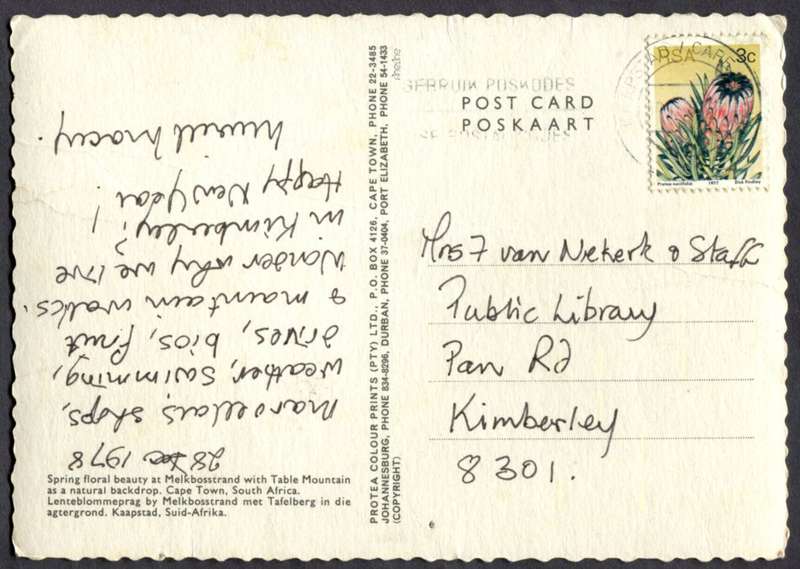 GEBRUIK POSKODES
POST CARD
POSKAART
RSA 3c
Protea neriifolia 1977 Dick Findlay
28 Dec 1978
Marvellous shops,
weather, swimming,
drives, bios, fruit
& mountain walks.
Wonder why we live
in Kimberley?!
Happy New Year!
Muriel Macey.
Mrs J van Niekerk & Staff
Public Library
Pan Rd
Kimberley
8301.
PROTEA COLOUR PRINTS (PTY) LTD., P.O. BOX 4126, CAPE TOWN, PHONE 22-3485
JOHANNESBURG, PHONE 834-8296, DURBAN, PHONE 37-0404, PORT ELIZABETH, PHONE 54-1433
(COPYRIGHT)
Spring floral beauty at Melkbosstrand with Table Mountain
as a natural backdrop. Cape Town, South Africa.
Lenteblommeprag by Melkbosstrand met Tafelberg in die
agtergrond. Kaapstad, Suid-Afrika.